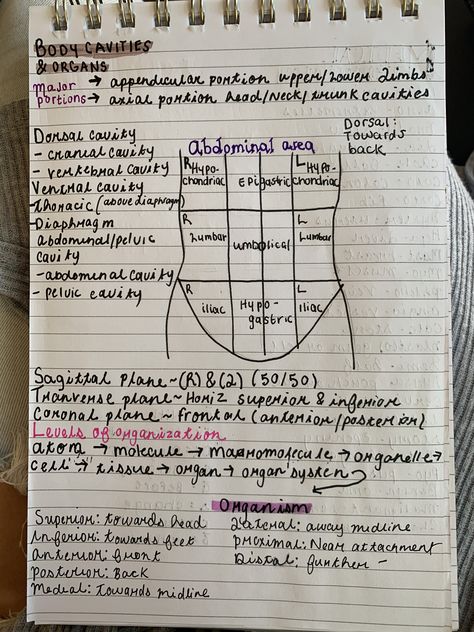 BODY CAVITIES
& ORGANS
major → appendicular portion upper/lower limbs
portions → axial portion head/neck/trunk cavities
Dorsal cavity
- cranial cavity
- vertebral cavity
Ventral cavity
- thoracic (above diaphragm)
- Diaphragm
abdominal/pelvic
cavity
- abdominal cavity
- pelvic cavity
Abdominal area
Dorsal:
Towards
back
R Hypo-
chondriac
Epigastric
L Hypo-
chondriac
R
Lumbar
umbilical
L
Lumbar
R
iliac
Hypo-
gastric
L
iliac
Sagittal plane ~ (R) & (L) (50/50)
Tranverse plane ~ Horiz superior & inferior
Coronal plane ~ frontal (anterior/posterior)
Levels of organization
atom → molecule → macromolecule → organelle →
cell → tissue → organ → organ system
Organism
Superior: towards head
Inferior: towards feet
anterior: front
posterior: Back
Medial: towards midline
Lateral: away midline
proximal: Near attachment
Distal: further -